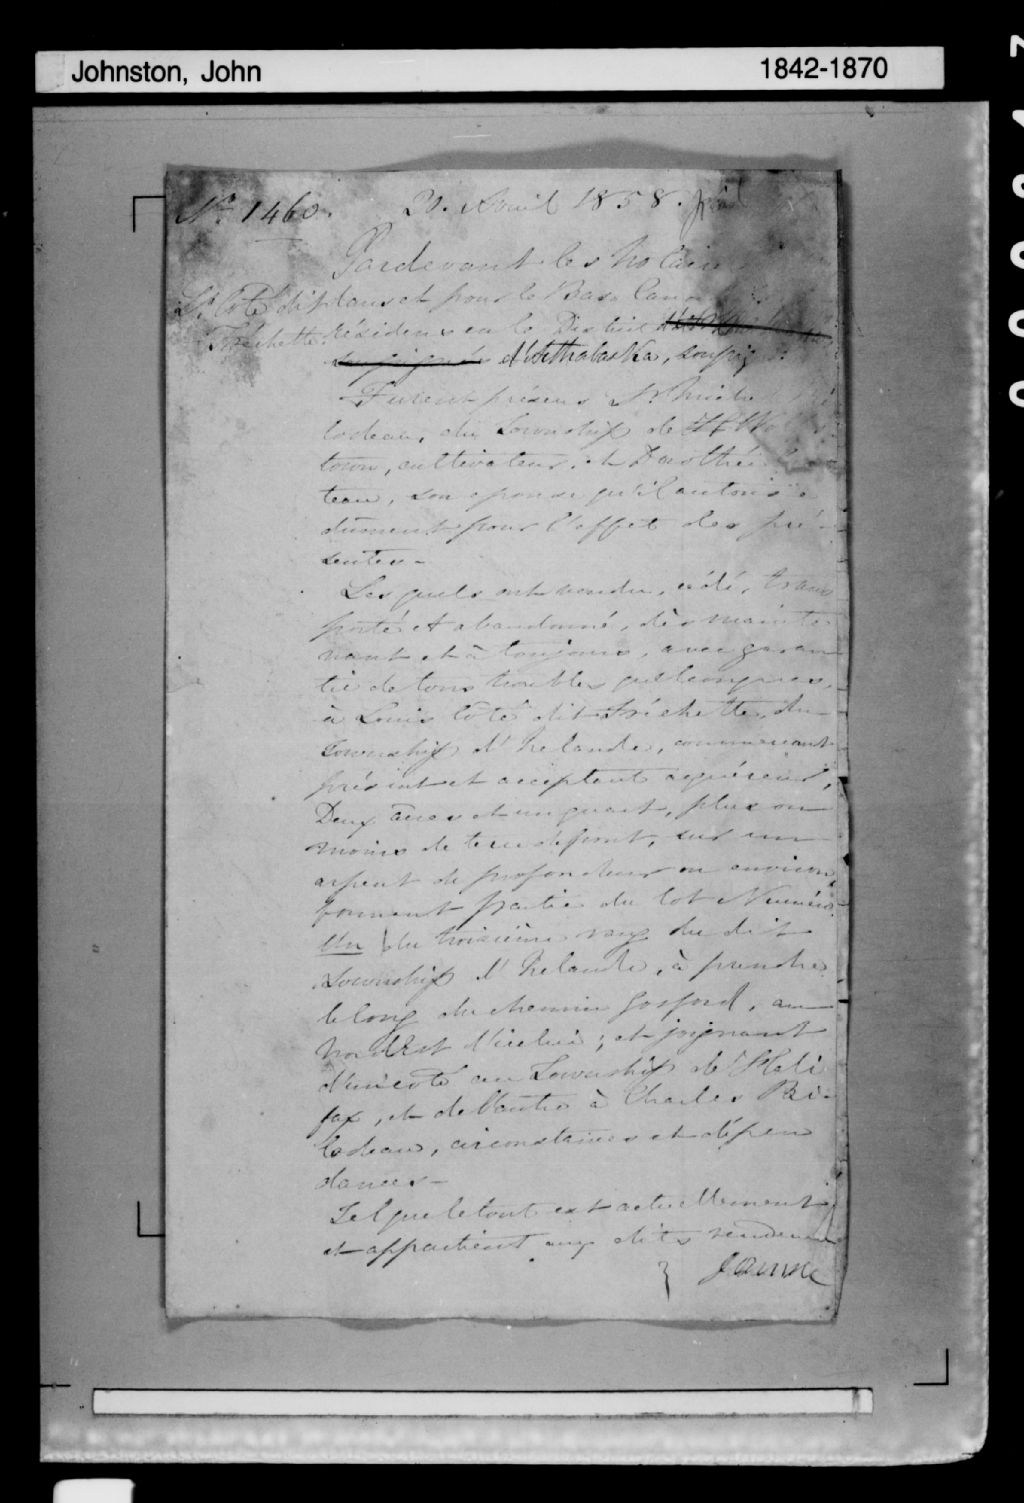 Johnston, John
1842-1870
No. 1460.
20. Avril 1858.
Pardevant les Notaires
Côté dit dans et pour le Bas Cana
Fréchette Résidens en le District
d'Arthabaska, soussig
Furent présens Sr.
lodeau, du Township de Wolfs
town, cultivateur, et Dorothée
teau, son epouse qu'il autorise
dûment pour l'effet des pré-
sentes-
Lesquels ont vendu, cédé, trans
porté et abandonné, dès mainte
nant et à toujours, avec garan
tie de tous troubles quelconques,
à Louis Côté dit Fréchette, du
Township d'Irelande, commercant
présent et acceptant acquéreur,
Deux acres et un quart, plus ou
moins de terre de front, sur un
arpent de profondeur ou environ,
formant partie du lot Numéro
Un du troisième rang du dit
Township d'Irelande, à prendre
le long du chemin Gosford, au
Nord Est d'icelui; et joignant
d'un coté au Township de Hali
fax, et de l'autre à Charles Bi-
lodeau, circonstances et dépen
dances-
Tel que le tout est actuellement
et appartient aux dits vendeurs